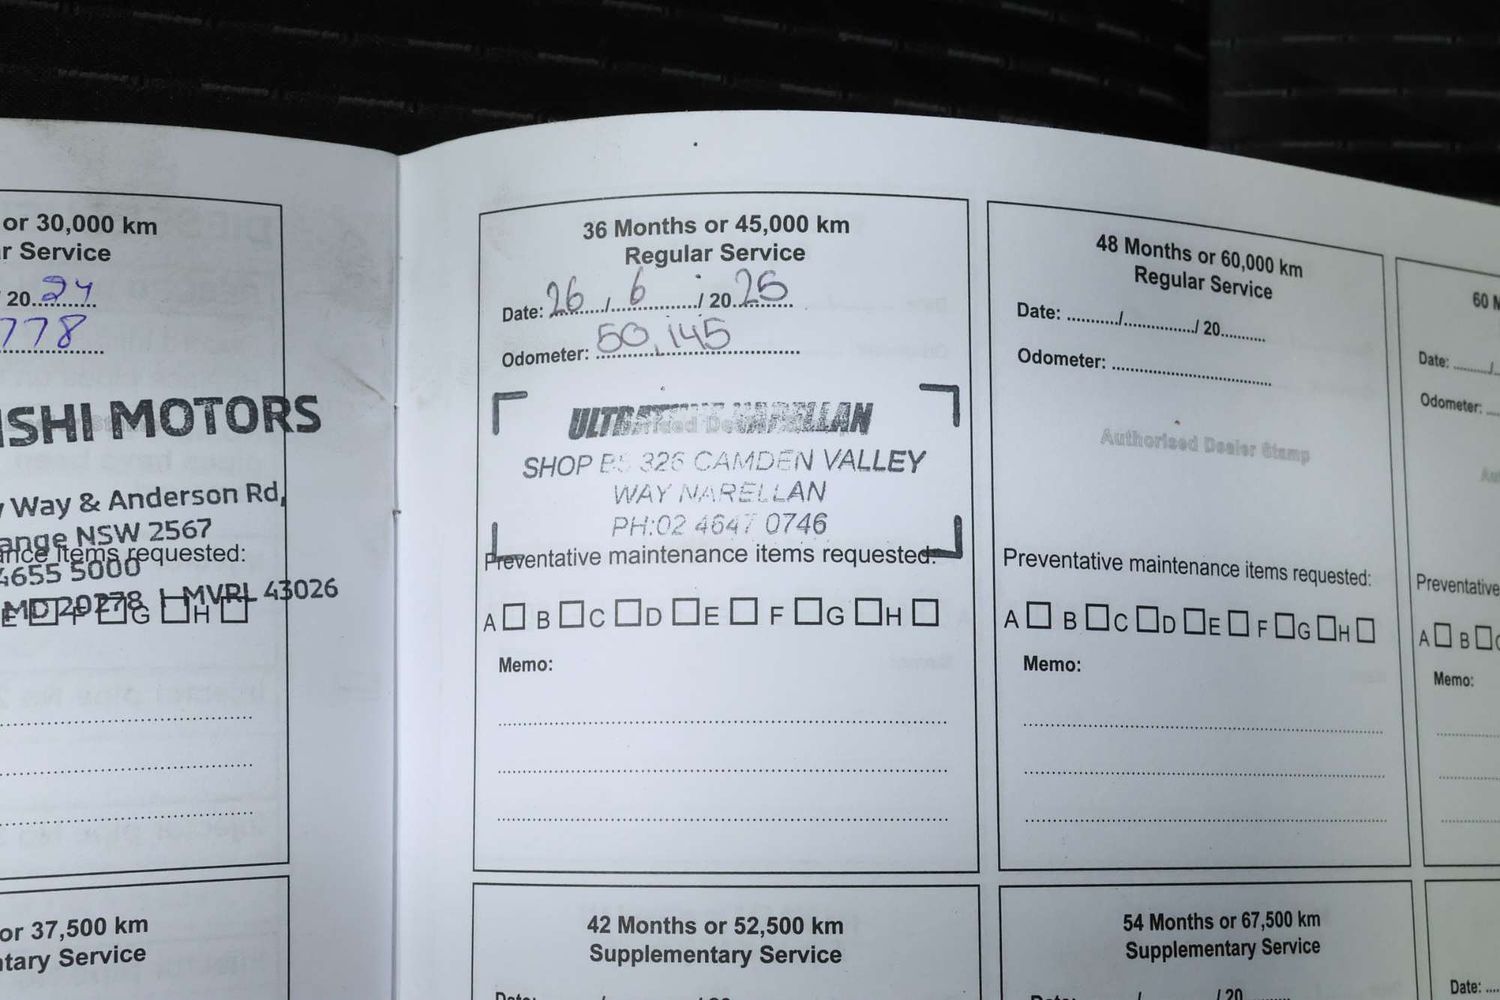 or 30,000 km
r Service
20 24
778
ISHI MOTORS
y Way & Anderson Rd,
ange NSW 2567
ance items requested:
4655 5000
MD 20278 | MVRL 43026
E F G H
or 37,500 km
tary Service
36 Months or 45,000 km
Regular Service
Date: 26 / 6 / 20 25
Odometer: 50,145
NARELLAN
SHOP 326 CAMDEN VALLEY
WAY NARELLAN
PH:02 4647 0746
Preventative maintenance items requested:
A B C D E F G H
Memo:
42 Months or 52,500 km
Supplementary Service
Date: / 20
48 Months or 60,000 km
Regular Service
Date: / / 20
Odometer:
Authorised Dealer Stamp
Preventative maintenance items requested:
A B C D E F G H
Memo:
54 Months or 67,500 km
Supplementary Service
Date: / 20
60 M
Date: /
Odometer:
Au
Preventative
A B C
Memo:
Date: